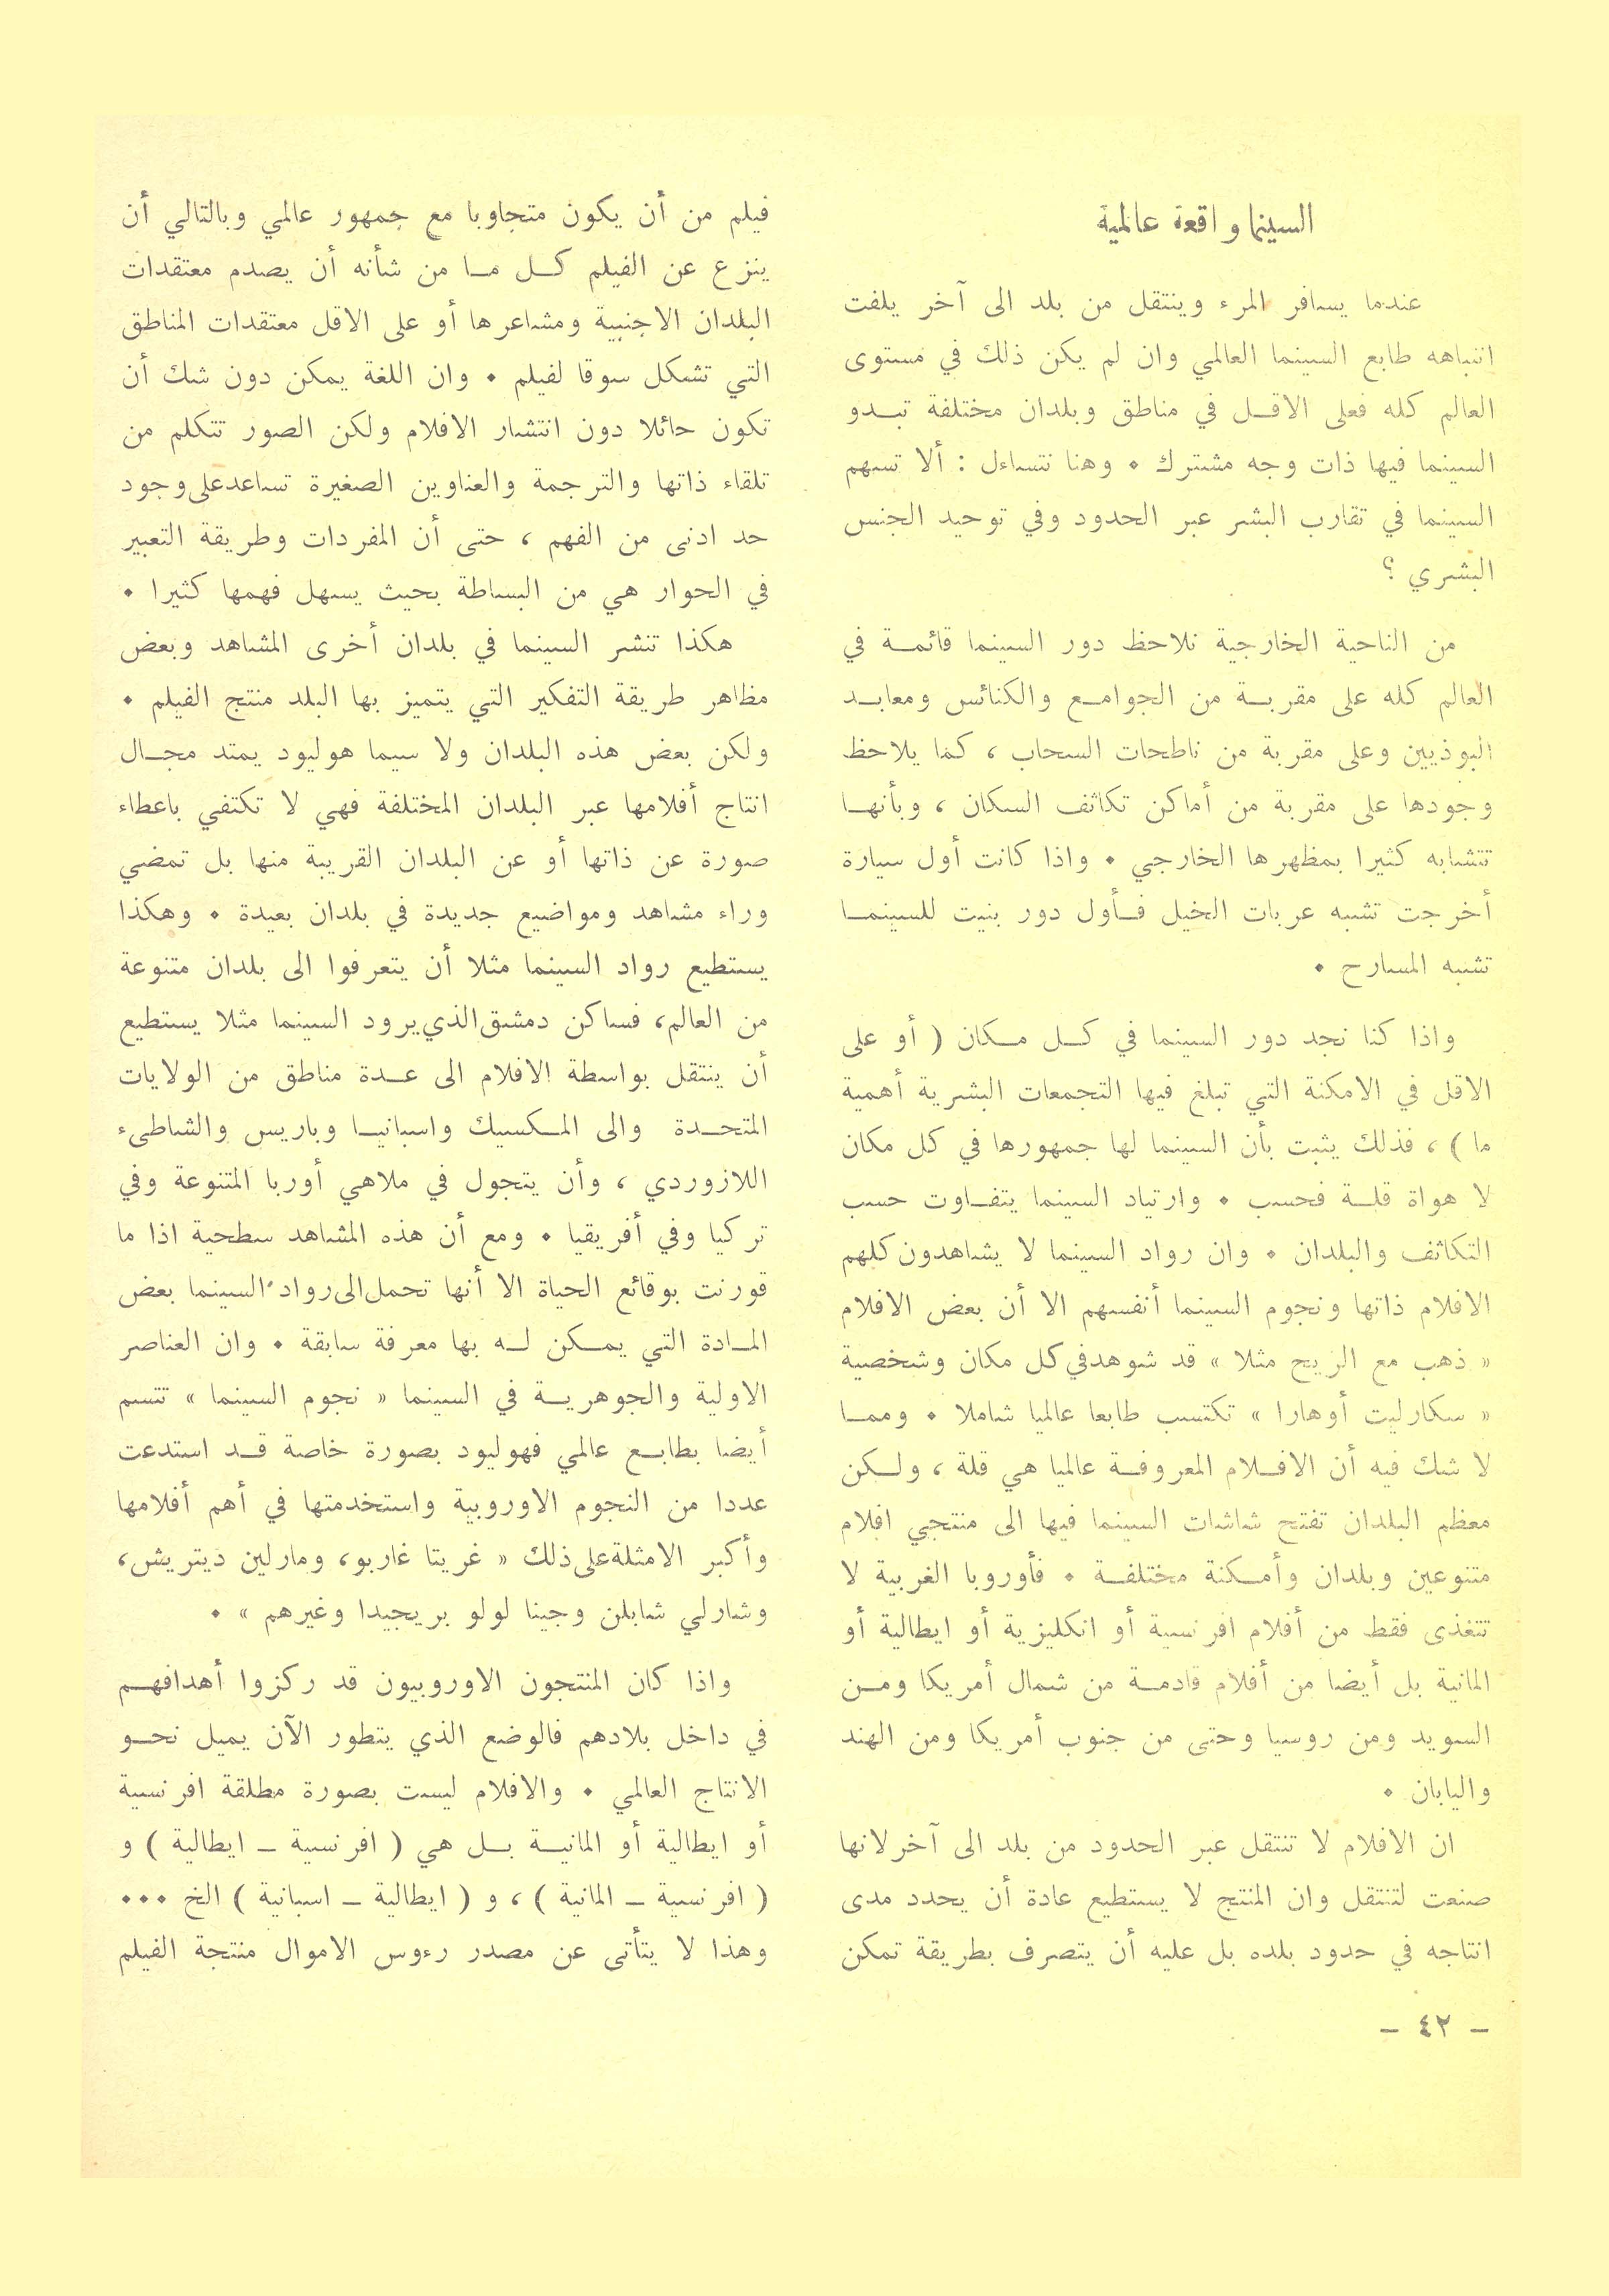 السينما واقعة عالمية
عندما يسافر المرء وينتقل من بلد الى آخر يلفت
انتباهه طابع السينما العالمي وان لم يكن ذلك في مستوى
العالم كله فعلى الاقـــل في مناطق وبلدان مختلفة تبــدو
السينما فيها ذات وجه مشترك • وهنا نتساءل : ألا تسهم
السينما في تقارب البشر عبر الحدود وفي توحيد الجنس
البشري ؟
من الناحية الخارجية نلاحظ دور السينما قائمــة في
العالم كله على مقربــة من الجوامــع والكنائس ومعابــد
البوذيين وعلى مقربة من ناطحات السحاب ، كما يلاحظ
وجودها على مقربة من أماكن تكاثف السكان ، وبأنهــا
تتشابه كثيرا بمظهرها الخارجي • واذا كانت أول سيارة
أخرجت تشبه عربات الخيل فــأول دور بنيت للسينمــا
تشبه المسارح •
واذا كنا نجد دور السينما في كــل مــكان ( أو على
الاقل في الامكنة التي تبلغ فيها التجمعات البشرية أهمية
ما ) ، فذلك يثبت بأن السينما لها جمهورها في كل مكان
لا هواة قلــة فحسب • وارتياد السينما يتفــاوت حسب
التكاثف والبلدان • وان رواد السينما لا يشاهدون كلهم
الافلام ذاتها ونجوم السينما أنفسهم الا أن بعض الافلام
« ذهب مع الريح مثلا » قد شوهد في كل مكان وشخصية
« سكارليت أوهارا » تكتسب طابعا عالميا شاملا • وممــا
لا شك فيه أن الافــلام المعروفــة عالميا هي قلة ، ولــكن
معظم البلدان تفتح شاشات السينما فيها الى منتجي افلام
متنوعين وبلدان وأمــكنة مختلفــة • فأوروبا الغربية لا
تتغذى فقط من أفلام افرنسية أو انكليزية أو ايطالية أو
المانية بل أيضا من أفلام قادمــة من شمال أمريكا ومــن
السويد ومن روسيا وحتى من جنوب أمريكا ومن الهند
واليابان •
ان الافلام لا تنتقل عبر الحدود من بلد الى آخر لانها
صنعت لتنتقل وان المنتج لا يستطيع عادة أن يحدد مدى
انتاجه في حدود بلده بل عليه أن يتصرف بطريقة تمكن
فيلم من أن يكون متجاوبا مع جمهور عالمي وبالتالي أن
ينزع عن الفيلم كــل مــا من شأنه أن يصدم معتقدات
البلدان الاجنبية ومشاعرها أو على الاقل معتقدات المناطق
التي تشكل سوقا لفيلم • وان اللغة يمكن دون شك أن
تكون حائلا دون انتشار الافلام ولكن الصور تتكلم من
تلقاء ذاتها والترجمة والعناوين الصغيرة تساعد على وجود
حد ادنى من الفهم ، حتى أن المفردات وطريقة التعبير
في الحوار هي من البساطة بحيث يسهل فهمها كثيرا •
هكذا تنشر السينما في بلدان أخرى المشاهد وبعض
مظاهر طريقة التفكير التي يتميز بها البلد منتج الفيلم •
ولكن بعض هذه البلدان ولا سيما هوليود يمتد مجــال
انتاج أفلامها عبر البلدان المختلفة فهي لا تكتفي باعطاء
صورة عن ذاتها أو عن البلدان القريبة منها بل تمضي
وراء مشاهد ومواضيع جديدة في بلدان بعيدة • وهكذا
يستطيع رواد السينما مثلا أن يتعرفوا الى بلدان متنوعة
من العالم، فساكن دمشق الذي يرود السينما مثلا يستطيع
أن ينتقل بواسطة الافلام الى عــدة مناطق من الولايات
المتحــدة والى المــكسيك واسبانيــا وباريس والشاطىء
اللازوردي ، وأن يتجول في ملاهي أوربا المتنوعة وفي
تركيا وفي أفريقيا • ومع أن هذه المشاهد سطحية اذا ما
قورنت بوقائع الحياة الا أنها تحمل الى رواد السينما بعض
المــادة التي يمــكن لــه بها معرفة سابقة • وان العناصر
الاولية والجوهريــة في السينما « نجوم السينما » تتسم
أيضا بطابــع عالمي فهوليود بصورة خاصة قــد استدعت
عددا من النجوم الاوروبية واستخدمتها في أهم أفلامها
وأكبر الامثلة على ذلك « غريتا غاربو، ومارلين ديتريش،
وشارلي شابلن وجينا لولو بريجيدا وغيرهم » •
واذا كان المنتجون الاوروبيون قد ركزوا أهدافهــم
في داخل بلادهم فالوضع الذي يتطور الآن يميل نحــو
الانتاج العالمي • والافلام ليست بصورة مطلقة افرنسية
أو ايطالية أو المانيــة بــل هي ( افرنسية ــ ايطالية ) و
( افرنسية ــ المانية ) ، و ( ايطالية ــ اسبانية ) الخ •••
وهذا لا يتأتى عن مصدر رءوس الاموال منتجة الفيلم
– ٤٢ –